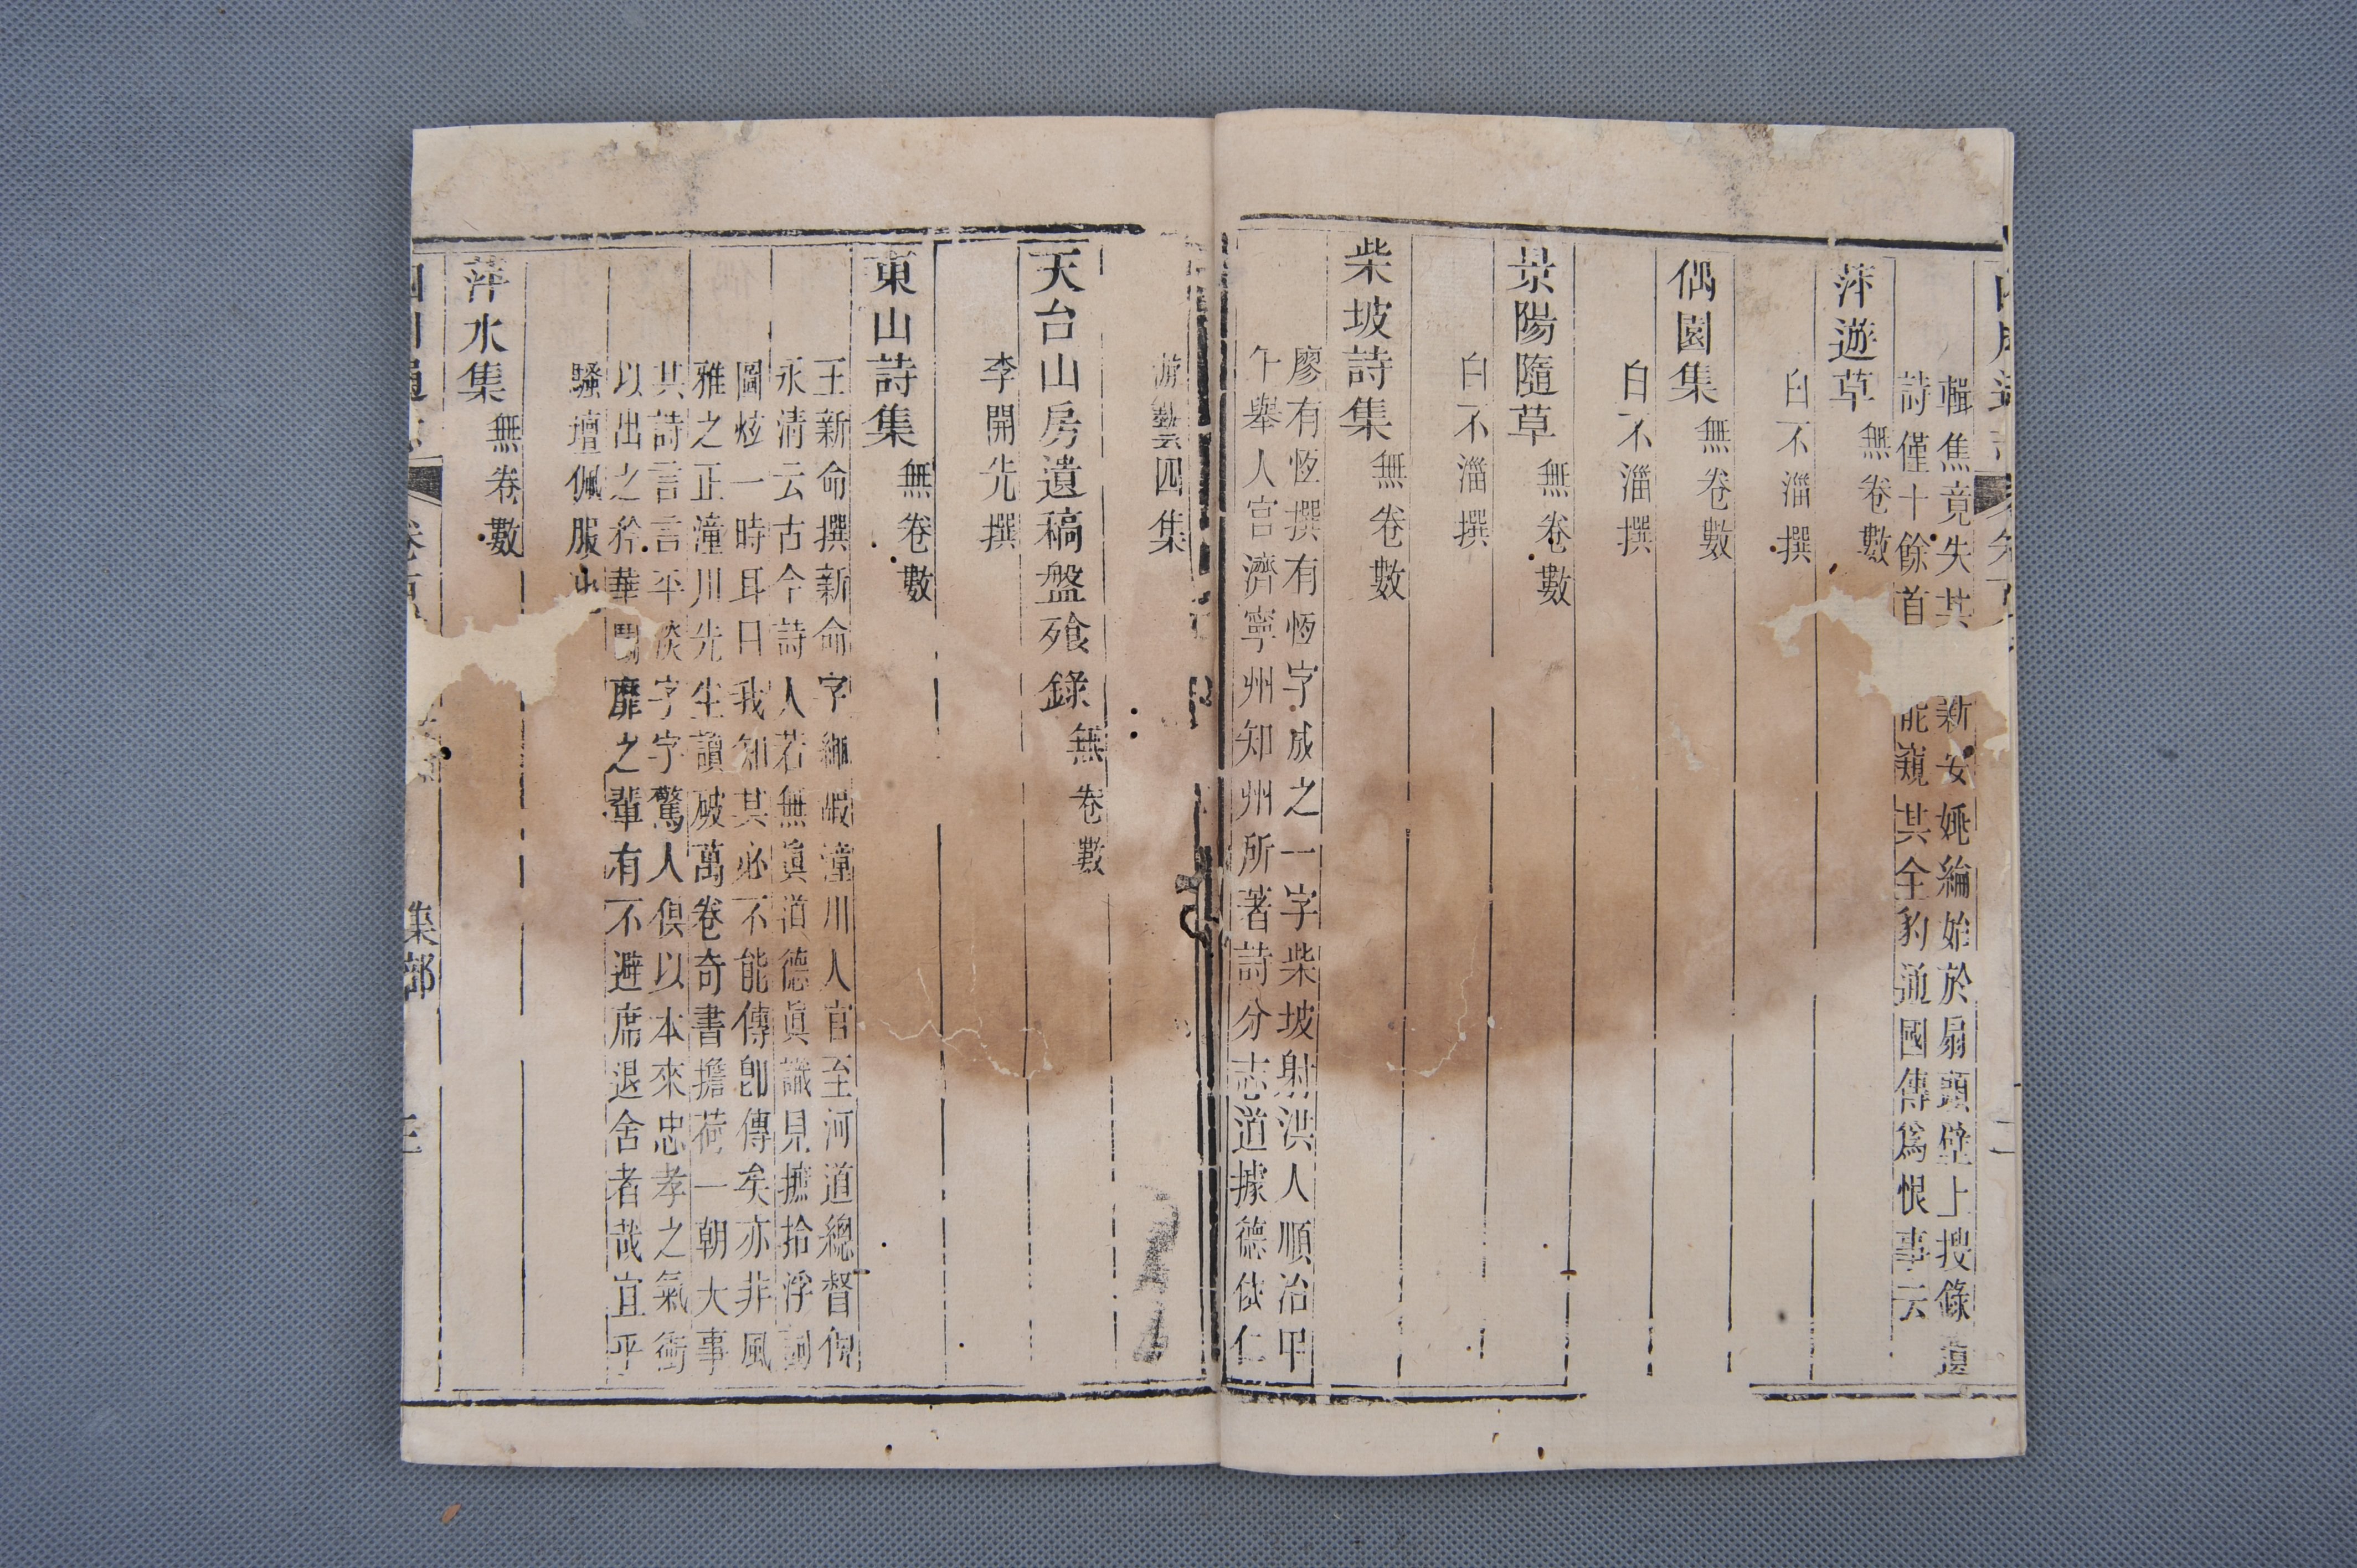 輯焦竟失其 新安姚綸始於扇頭壁上搜錄遺
詩僅十餘首 能窺其全豹通國傳爲恨事云
萍遊草無卷數
白不淄撰
偶園集無卷數
白不淄撰
景陽隨草無卷數
白不淄撰
柴坡詩集無卷數
廖有恆撰有恆字成之一字柴坡射洪人順治甲
午舉人官濟寧州知州所著詩分志道據德依仁
游藝四集
天台山房遺稿盤飱錄無卷數
李開先撰
東山詩集無卷數
王新命撰新命字純嘏潼川人官至河道總督倪
永清云古今詩人若無眞道德眞識見摭拾浮詞
圖炫一時耳目我知其必不能傳卽傳矣亦非風
雅之正潼川先生讀破萬卷奇書擔荷一朝大事
其詩言言平淡字字驚人俱以本來忠孝之氣衝
以出之矜華鬥靡之輩有不避席退舍者哉宜乎
騷壇佩服
萍水集無卷數
集部